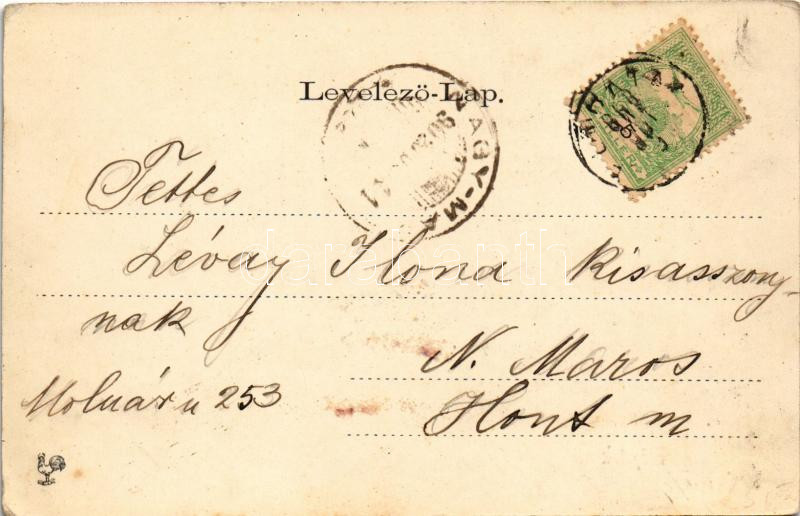 Levelező-Lap.
NAGY-MA
Tettes
Lévay Ilona Kisasszony-
nak
N. Maros
Molnár u 253
Hont m
darabanth